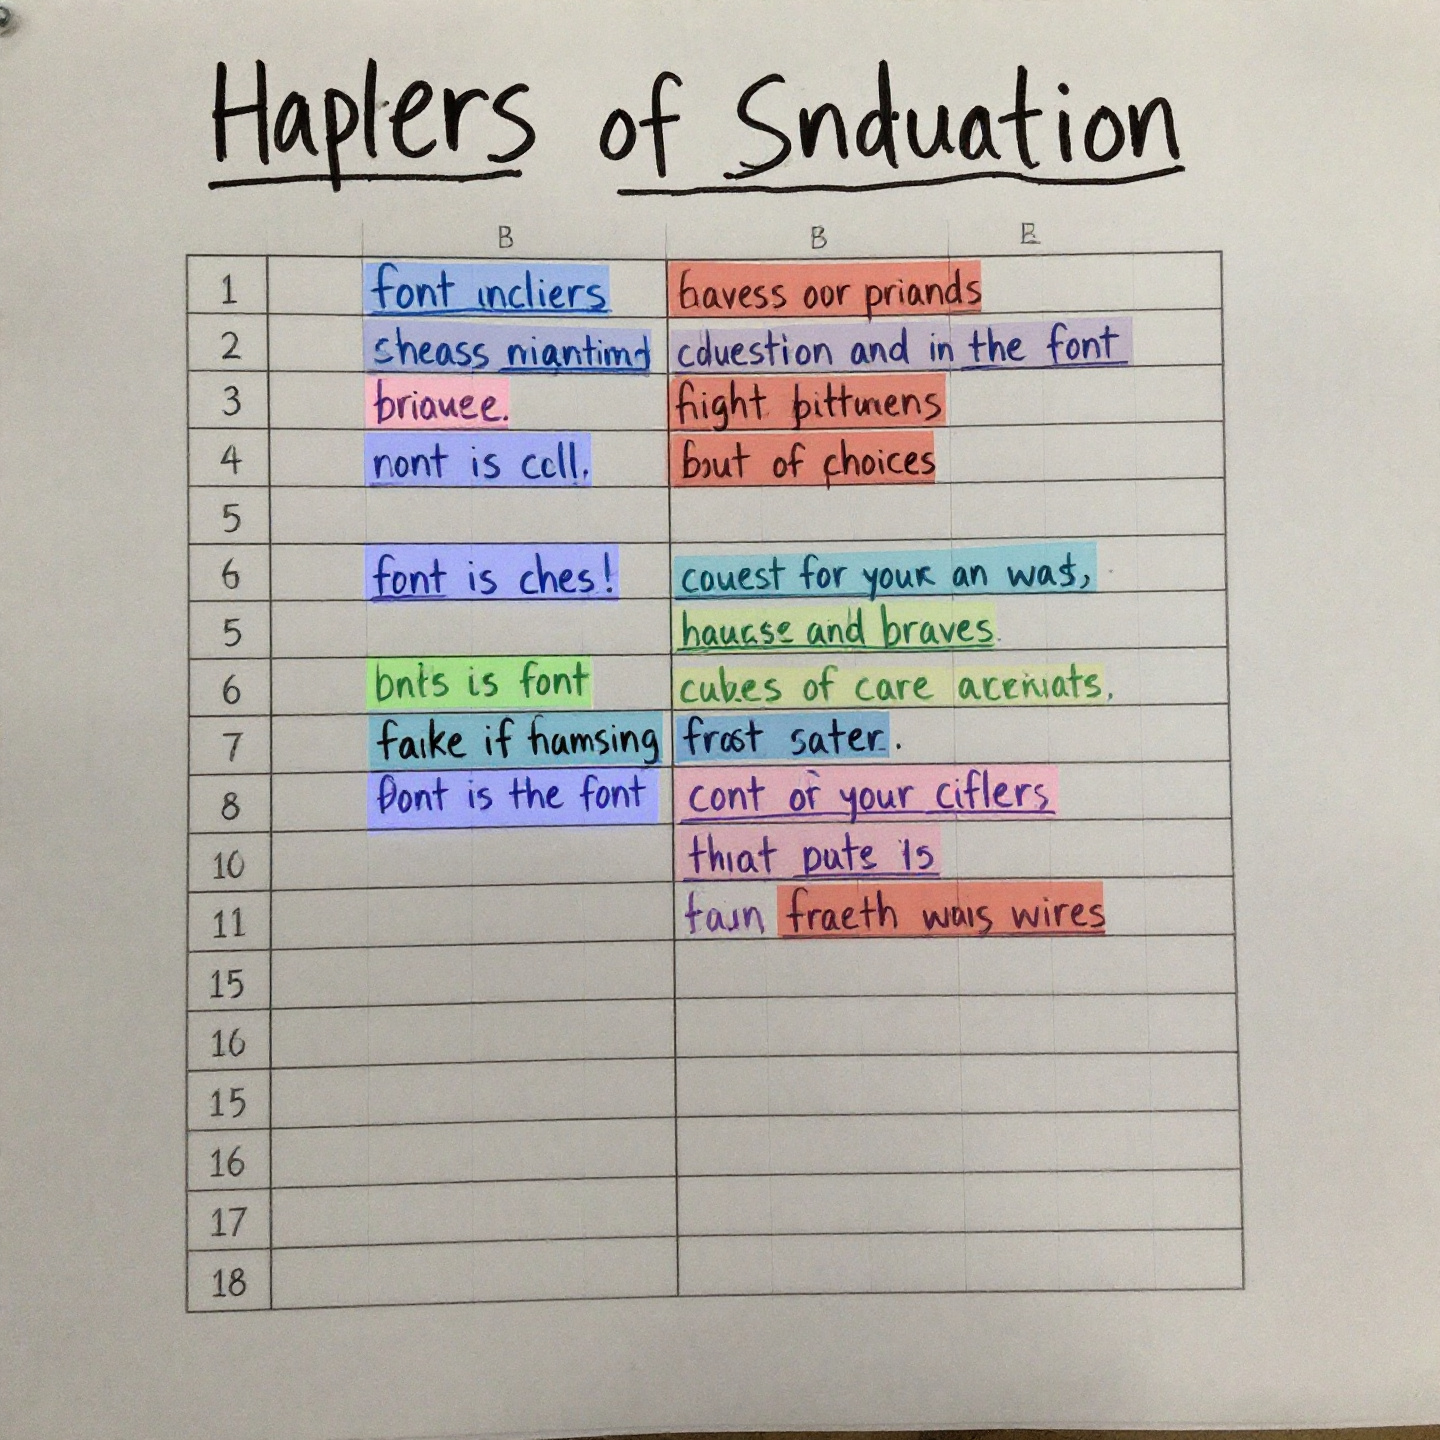 Haplers of Snduation
B B E
1 font incliers bavess oor priands
2 sheass niantimd cduestion and in the font
3 briauee. hight pitturens
4 nont is ccll. bout of choices
5
6 font is ches! couest for your an wat,
5 haucse and braves.
6 bnts is font cubes of care
7 faike if hamsing frost sater.
8 Dont is the font cont of your ciflers
10 thiat pute is
11 fraeth wais wires
15
16
15
16
17
18